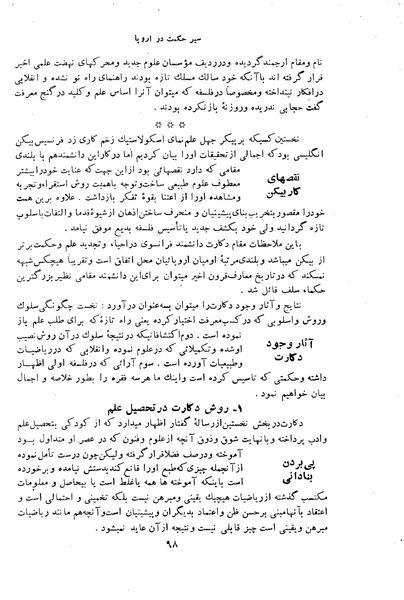 سیر حکمت در اروپا
نام ومقام ارجمندگردیده ودرردیف مؤسسان علوم جدید ومحرکهای نهضت علمی اخیر
قرار گرفته اند باآنکه خود سالک مسلک تازه بودند راهنمای راه نو نشده و انقلابی
درافکار نینداخته ومخصوصاً درفلسفه که میتوان آنرا اساس علم و کلید در گنج معرفت
گفت حجابی ندریده وروزنهٔ بازنکرده بودند .
* * *
نخستین کسیکه بر پیکر جهل علم‌نمای اسکولاستیک زخم کاری زد فرنسیس بیکن
انگلیسی بود که اجمالی ازتحقیقات اورا بیان کردیم اما درکار این دانشمندهم با بلندی
نقصهای
کار بیکن
مقامی که دارد نقصهائی بود ازین جهت که عنایت خودرا بیشتر
معطوف علوم طبیعی ساخت وتوجه باهمیت روش استقراء وتجربه
ومشاهده اورا از اعتنا بقوهٔ تفکر بازداشت . علاوه برین همت
خودرا مقصور بتخریب بنای پیشینیان و منحرف ساختن اذهان ازشیوهٔ قدما والتفات باسلوب
تازه گردانید ولی خود بکشف جدید یا تأسیس فلسفه بدیع موفق نیامد .
با این ملاحظات مقام دکارت دانشمند فرانسوی دراحیاء وتجدید علم وحکمت برتر
از بیکن میباشد وبلندی مرتبهٔ اومیان اروپائیان محل اتفاق است وتقریباً هیچکس شبهه
نمیکند که درتاریخ معارف قرون اخیر میتوان برای این دانشمند مقامی نظیر بزرگترین
حکماء سلف قائل شد .
نتایج وآثار وجود دکارت را میتوان بسه عنوان درآورد : نخست چگونگی سلوک
وروش واسلوبی که درکسب معرفت اختیار کرده یعنی راه تازهٔ که برای طلب علم باز
آثار وجود
دکارت
نموده است . دوم اکتشافاتیکه درنتیجهٔ سلوک درآن روش نصیب
اوشده وتکمیلاتی که درعلوم نموده وانقلابی که درریاضیات
وطبیعیات آورده است . سوم آرائی که درفلسفه اولی اظهار
داشته وحکمتی که تأسیس کرده است واینک ما هرسه فقره را بطور خلاصه و اجمال
بیان خواهیم نمود .
۱ـ روش دکارت در تحصیل علم
دکارت در بخش نخستین از رسالهٔ گفتار اظهار میدارد که از کودکی بتحصیل علم
وادب پرداخته و بانهایت شوق وذوق آنچه ازعلوم وفنون که در عصر او متداول بود
پی بردن
بنادانی
آموخته ودرصف فضلا قرار گرفته ولیکن چون درست تأمل نموده
ازآنجمله چیزی که طبع اورا قانع کند بدستش نیامده و برخورده
است باینکه آموخته ها همه یا غلط است یا بیحاصل و معلومات
مکتسب گذشته از ریاضیات هیچیک یقینی ومبرهن نیست بلکه تخمینی و احتمالی است و
اعتقاد بآنها مبنی برحسن ظن واعتماد بدیگران و پیشینیان است وآنچه هم مانند ریاضیات
مبرهن ویقینی است چیز قابلی نیست و نتیجه از آن عاید نمیشود .
۹۸